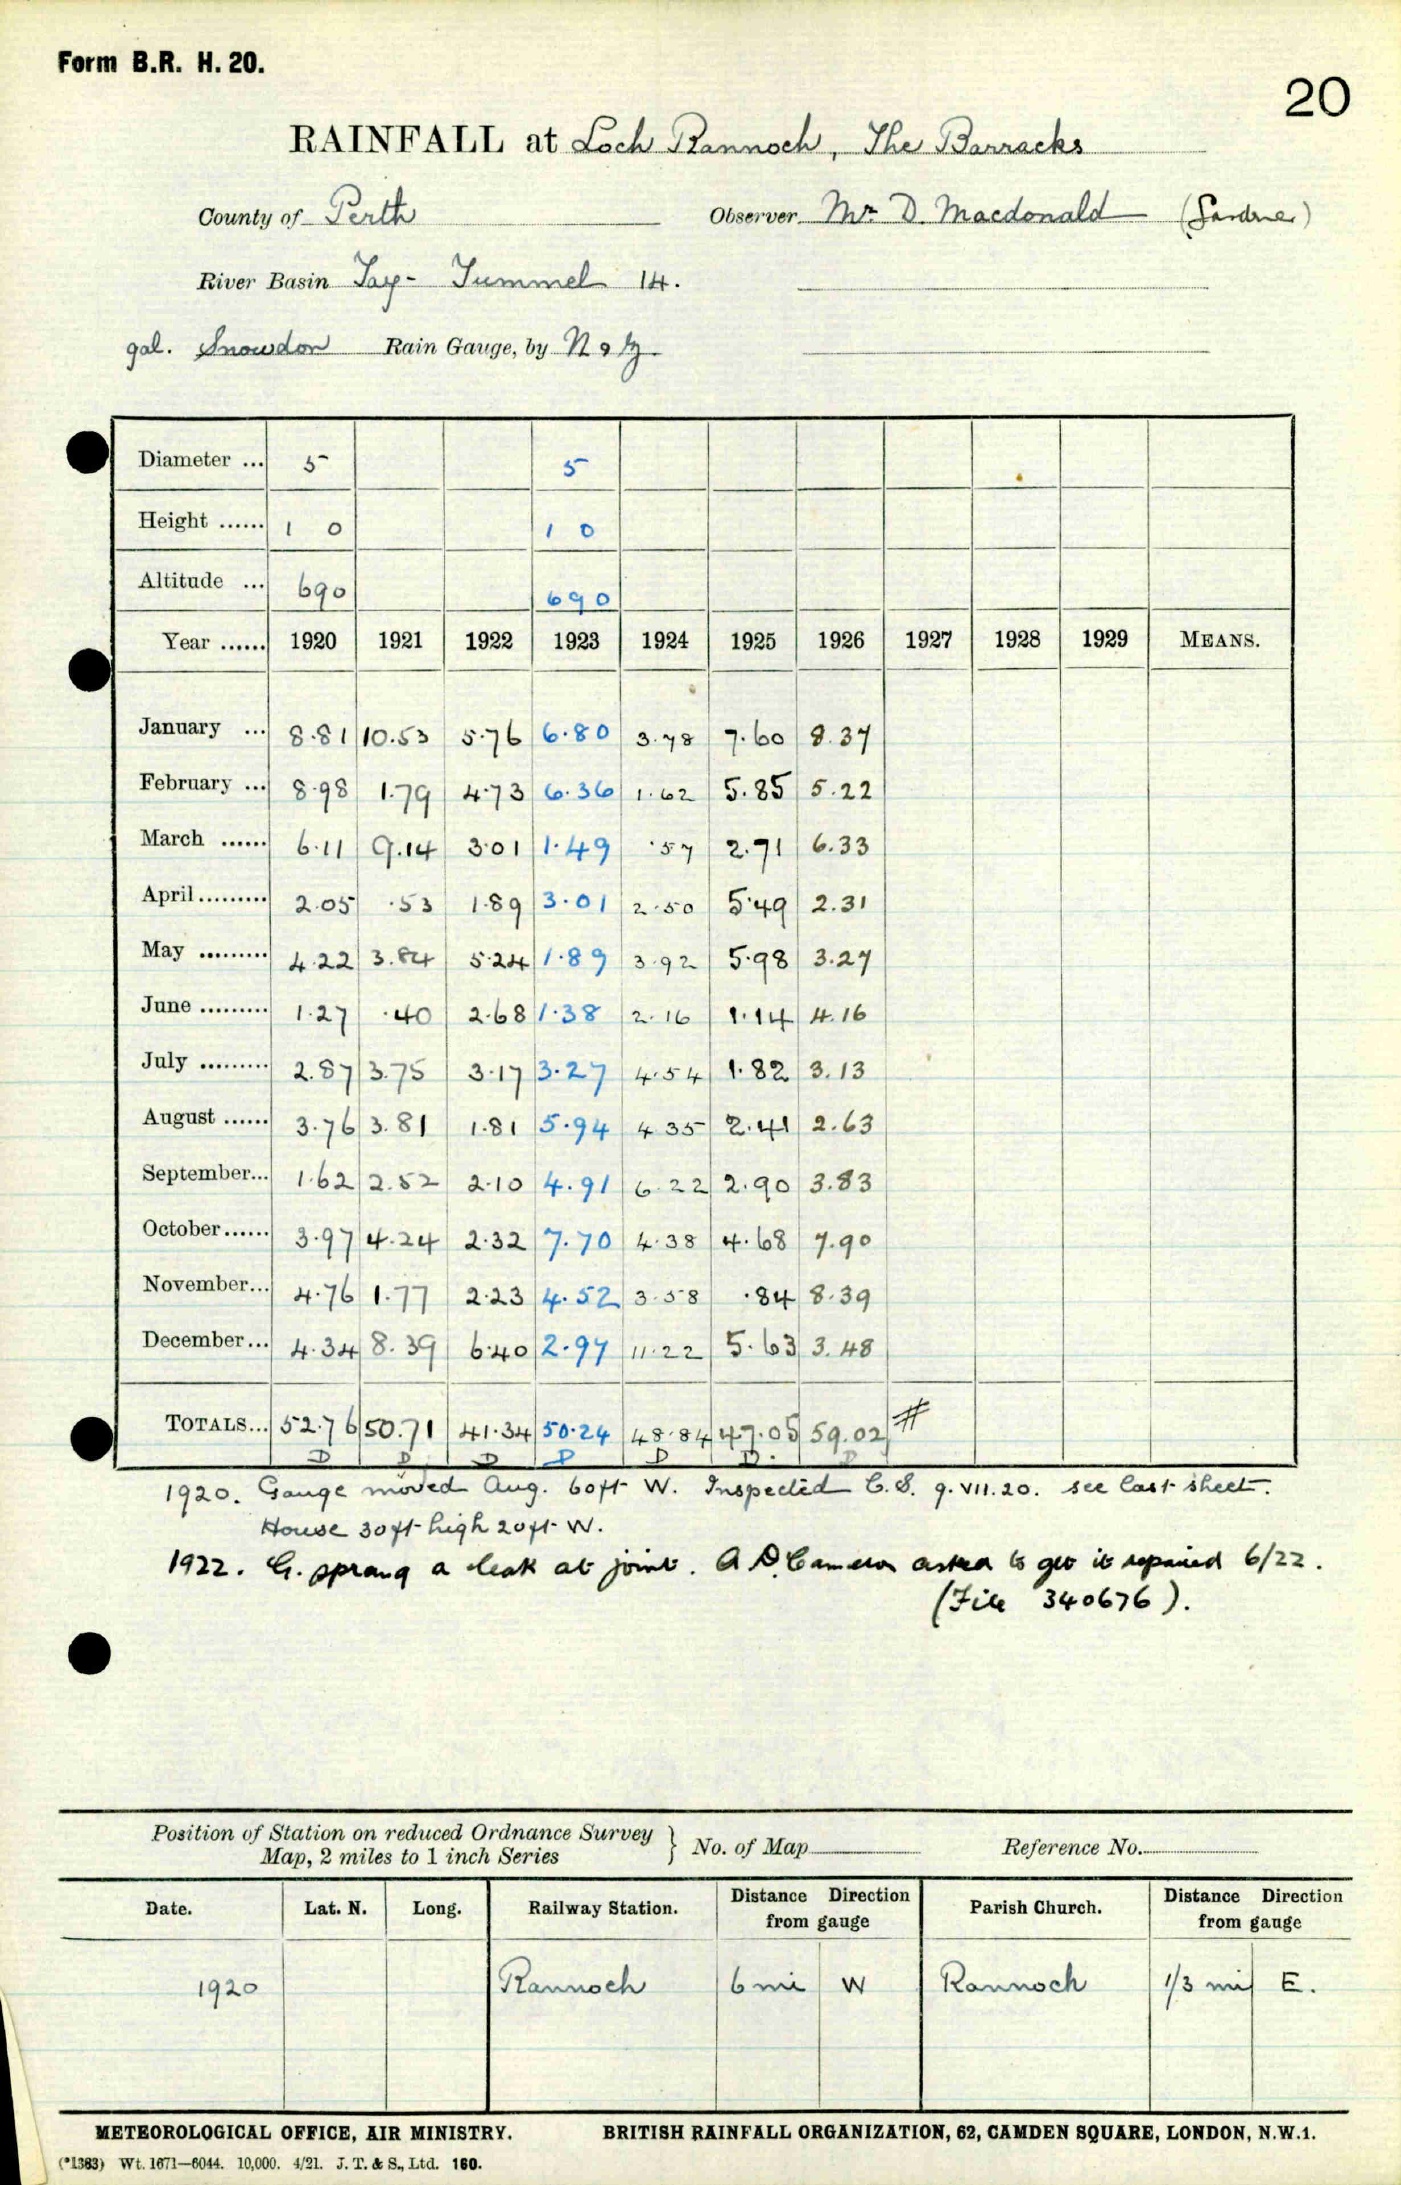 Form B.R. H. 20.
20
RAINFALL at Loch Rannoch, The Barracks
County of Perth Observer Mr D. Macdonald (Gardner)
River Basin Tay - Tummel 14.
gal. Snowdon Rain Gauge, by N & Z.
Diameter ... 5 5
Height ...... 1 0 1 0
Altitude ... 690 690
Year ...... 1920 1921 1922 1923 1924 1925 1926 1927 1928 1929 MEANS.
January ... 8.81 10.53 5.76 6.80 3.78 7.60 8.37
February ... 8.98 1.79 4.73 6.36 1.62 5.85 5.22
March ...... 6.11 9.14 3.01 1.49 .57 2.71 6.33
April ......... 2.05 .53 1.89 3.01 2.50 5.49 2.31
May ......... 4.22 3.84 5.24 1.89 3.92 5.98 3.27
June ......... 1.27 .40 2.68 1.38 2.16 1.14 4.16
July ......... 2.87 3.75 3.17 3.27 4.54 1.82 3.13
August ...... 3.76 3.81 1.81 5.94 4.35 2.41 2.63
September... 1.62 2.52 2.10 4.91 6.22 2.90 3.83
October...... 3.97 4.24 2.32 7.70 4.38 4.68 7.90
November... 4.76 1.77 2.23 4.52 3.58 .84 8.39
December... 4.34 8.39 6.40 2.97 11.22 5.63 3.48
TOTALS... 52.76 50.71 41.34 50.24 48.84 47.05 59.02 #
D D D D D D. D
1920. Gauge moved Aug. 60ft W. Inspected C.S. 9.VII.20. see last sheet.
House 30ft high 20ft W.
1922. G. sprang a leak at joint. A.D. Cameron asked to get it repaired 6/22.
(File 340676).
Position of Station on reduced Ordnance Survey
Map, 2 miles to 1 inch Series } No. of Map Reference No.
Date. Lat. N. Long. Railway Station. Distance Direction from gauge Parish Church. Distance Direction from gauge
1920 Rannoch 6 mi W Rannoch 1/3 mi E.
METEOROLOGICAL OFFICE, AIR MINISTRY. BRITISH RAINFALL ORGANIZATION, 62, CAMDEN SQUARE, LONDON, N.W.1.
(*1383) Wt. 1671—6044. 10,000. 4/21. J. T. & S., Ltd. 160.